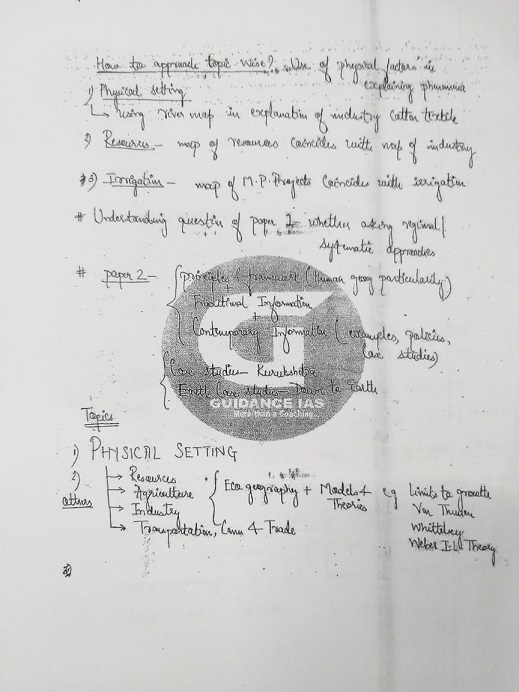 How to approach topic wise? Use of physical factors in
explaining phenomena
1) Physical setting
↳ Using river map in explanation of industry cotton textile
2) Resources - map of resources coincides with map of industry
#3) Irrigation - map of M.P. Projects coincides with irrigation
# Understanding question of paper 2 whether asking regional/
systematic approaches
# paper 2 - { principles & framework (Human geog particularly)
+
Traditional Information
+
Contemporary Information (examples, policies,
Case studies)
{ Case studies - Kurukshetra
Case studies - Down to Earth
GUIDANCE IAS
More than a Coaching..
Topics
1) PHYSICAL SETTING
2) → Resources
others → Agriculture { Eco geography + Models & Theories e.g. Limits to growth
→ Industry Von Thunen
→ Transportation, Comm & Trade Whittlesey
Weber I.L. Theory
3)